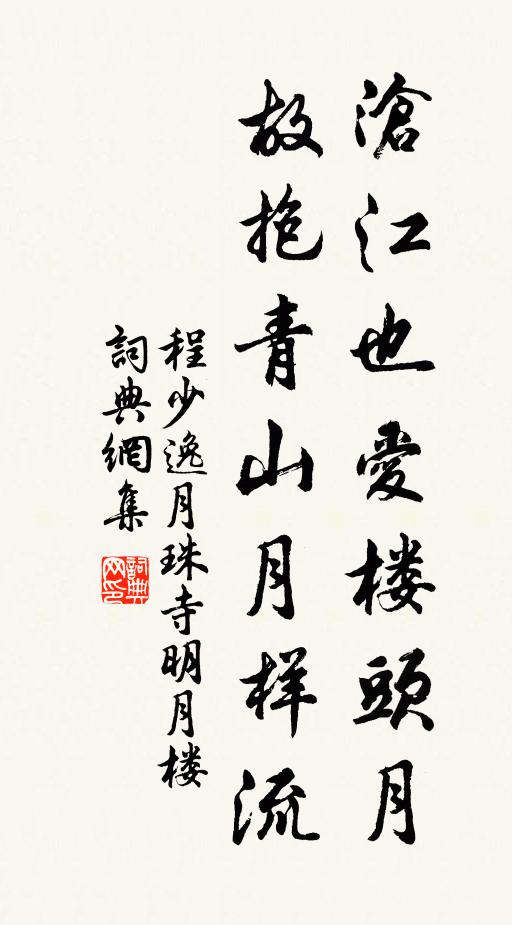 滄江也愛楼頭月
故抱青山月样流
程少逸月珠寺明月楼
詞典網集
詞典网印